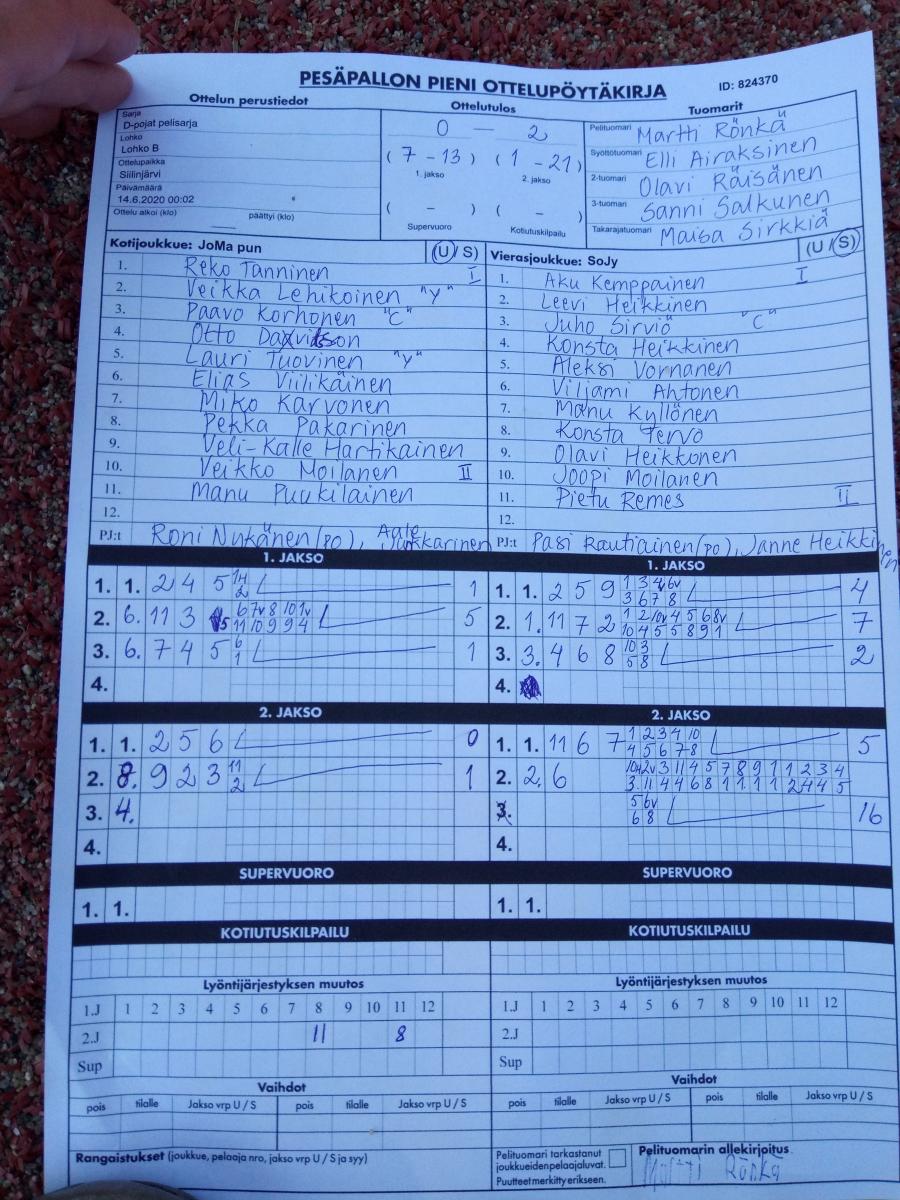 PESÄPALLON PIENI OTTELUPÖYTÄKIRJA
ID: 824370
Ottelun perustiedot
Sarja
D-pojat pelisarja
Lohko
Lohko B
Ottelupaikka
Siilinjärvi
Päivämäärä
14.6.2020 00:02
Ottelu alkoi (klo) päättyi (klo)
Ottelutulos
0 — 2
( 7 - 13 ) ( 1 - 21 )
1. jakso 2. jakso
( - ) ( - )
Supervuoro Kotiutuskilpailu
Tuomarit
Pelituomari Martti Rönkä
Syöttötuomari Elli Airaksinen
2-tuomari Olavi Räisänen
3-tuomari Sanni Salkunen
Takarajatuomari Maisa Sirkkiä
Kotijoukkue: JoMa pun (U / S)
1. Reko Tanninen I
2. Veikka Lehikoinen "Y"
3. Paavo Korhonen "C"
4. Otto
5. Lauri Tuovinen "Y"
6. Elias Viilikäinen
7. Miko Karvonen
8. Pekka Pakarinen
9. Veli-Kalle Hartikainen
10. Veikko Moilanen II
11. Manu Puukilainen
12.
PJ:t Roni Nykänen (po), Aale
Vierasjoukkue: SoJy (U / S)
1. Aku Kemppainen I
2. Leevi Heikkinen
3. Juho Sirviö "C"
4. Konsta Heikkinen
5. Aleksi Vornanen
6. Viljami Ahtonen
7. Manu Kyllönen
8. Konsta Tervo
9. Olavi Heikkonen
10. Joopi Moilanen
11. Pietu Remes II
12.
PJ:t Pasi Rautiainen (po), Janne Heikkinen
1. JAKSO
1. 1. 2 4 5 14 1
2
2. 6. 11 3 5 6 7v 8 10 1v 5
11 10 9 9 4
3. 6. 7 4 5 6 1
1
4.
1. JAKSO
1. 1. 2 5 9 1 3 4 6v 4
3 6 7 8
2. 1. 11 7 2 1 2 10v 4 5 6 8v 7
10 4 5 5 8 9 1
3. 3. 4 6 8 10 3 2
5 8
4.
2. JAKSO
1. 1. 2 5 6 0
2. 8. 9 2 3 11 1
2
3. 4.
4.
2. JAKSO
1. 1. 11 6 7 1 2 3 4 10 5
4 5 6 7 8
2. 2. 6 10v 2v 3 11 4 5 7 8 9 1 1 2 3 4
3 11 4 4 6 8 1 1 1 1 2 4 4 5
3. 5 6v 16
6 8
4.
SUPERVUORO
1. 1.
SUPERVUORO
1. 1.
KOTIUTUSKILPAILU
KOTIUTUSKILPAILU
Lyöntijärjestyksen muutos
1.J 1 2 3 4 5 6 7 8 9 10 11 12
2.J 11 8
Sup
Lyöntijärjestyksen muutos
1.J 1 2 3 4 5 6 7 8 9 10 11 12
2.J
Sup
Vaihdot
pois tilalle Jakso vrp U / S pois tilalle Jakso vrp U / S
Vaihdot
pois tilalle Jakso vrp U / S pois tilalle Jakso vrp U / S
Rangaistukset (joukkue, pelaaja nro, jakso vrp U / S ja syy)
Pelituomari tarkastanut
joukkueiden pelaajaluvat.
Puutteet merkitty erikseen.
Pelituomarin allekirjoitus
Martti Rönkä